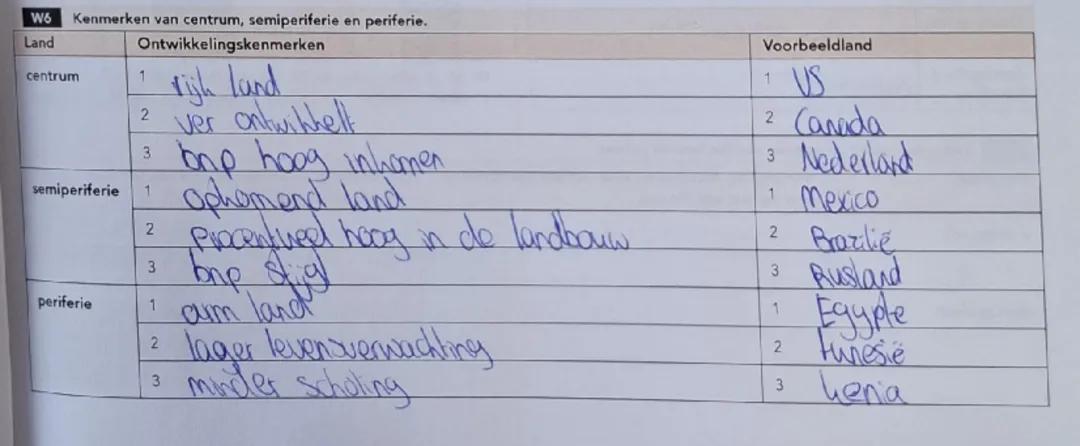 W6 Kenmerken van centrum, semiperiferie en periferie.
Land Ontwikkelingskenmerken Voorbeeldland
centrum 1 rijk land 1 US
2 ver ontwikkelt 2 Canada
3 bnp hoog inkomen 3 Nederland
semiperiferie 1 opkomend land 1 Mexico
2 procentueel hoog in de landbouw 2 Brazilië
3 bnp stijgt 3 Rusland
periferie 1 arm land 1 Egypte
2 lager levensverwachting 2 tunesië
3 minder scholing 3 kenia